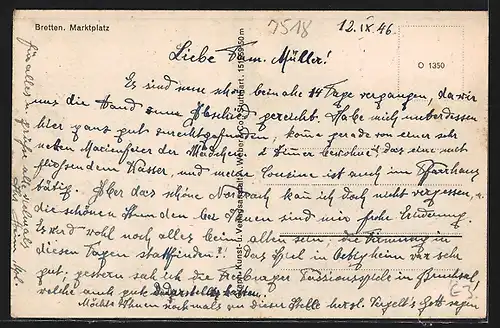 Bretten. Marktplatz
7518
12.IX.46.
O 1350
Liebe Fam. Müller!
Es sind nun schon beinahe 14 Tage vergangen, da wir
uns die Hand zum Abschied gereicht. Habe mich unterdessen
hier ganz gut zurechtgefunden, komme gerade von einer sehr
netten Marienfeier der Mädchen, 2 Zimmer bewohne das eine mit
fließendem Wasser, und meine Cousine ist auch im Pfarrhaus
tätig. Aber das schöne Nordrach kann ich doch nicht vergessen,
die schönen Stunden bei Ihnen sind mir frohe Erinnerung
Es wird wohl noch alles beim alten sein, die Firmung in
diesen Tagen stattfinden! das Spiel in Oetigheim war sehr
gut, gestern sah ich die Freiburger Passionsspiele in Bruchsal,
welche auch gut
Möchte Ihnen nochmals an dieser Stelle herzl. Vergelt's Gott sagen
für alles u. grüße alle nochmals
Kunst- u. Verlagsanstalt Weber & Co., Stuttgart, 151959 50 m